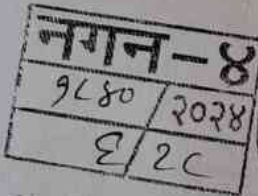 नगन-४
१८४०/२०२४
६/२८